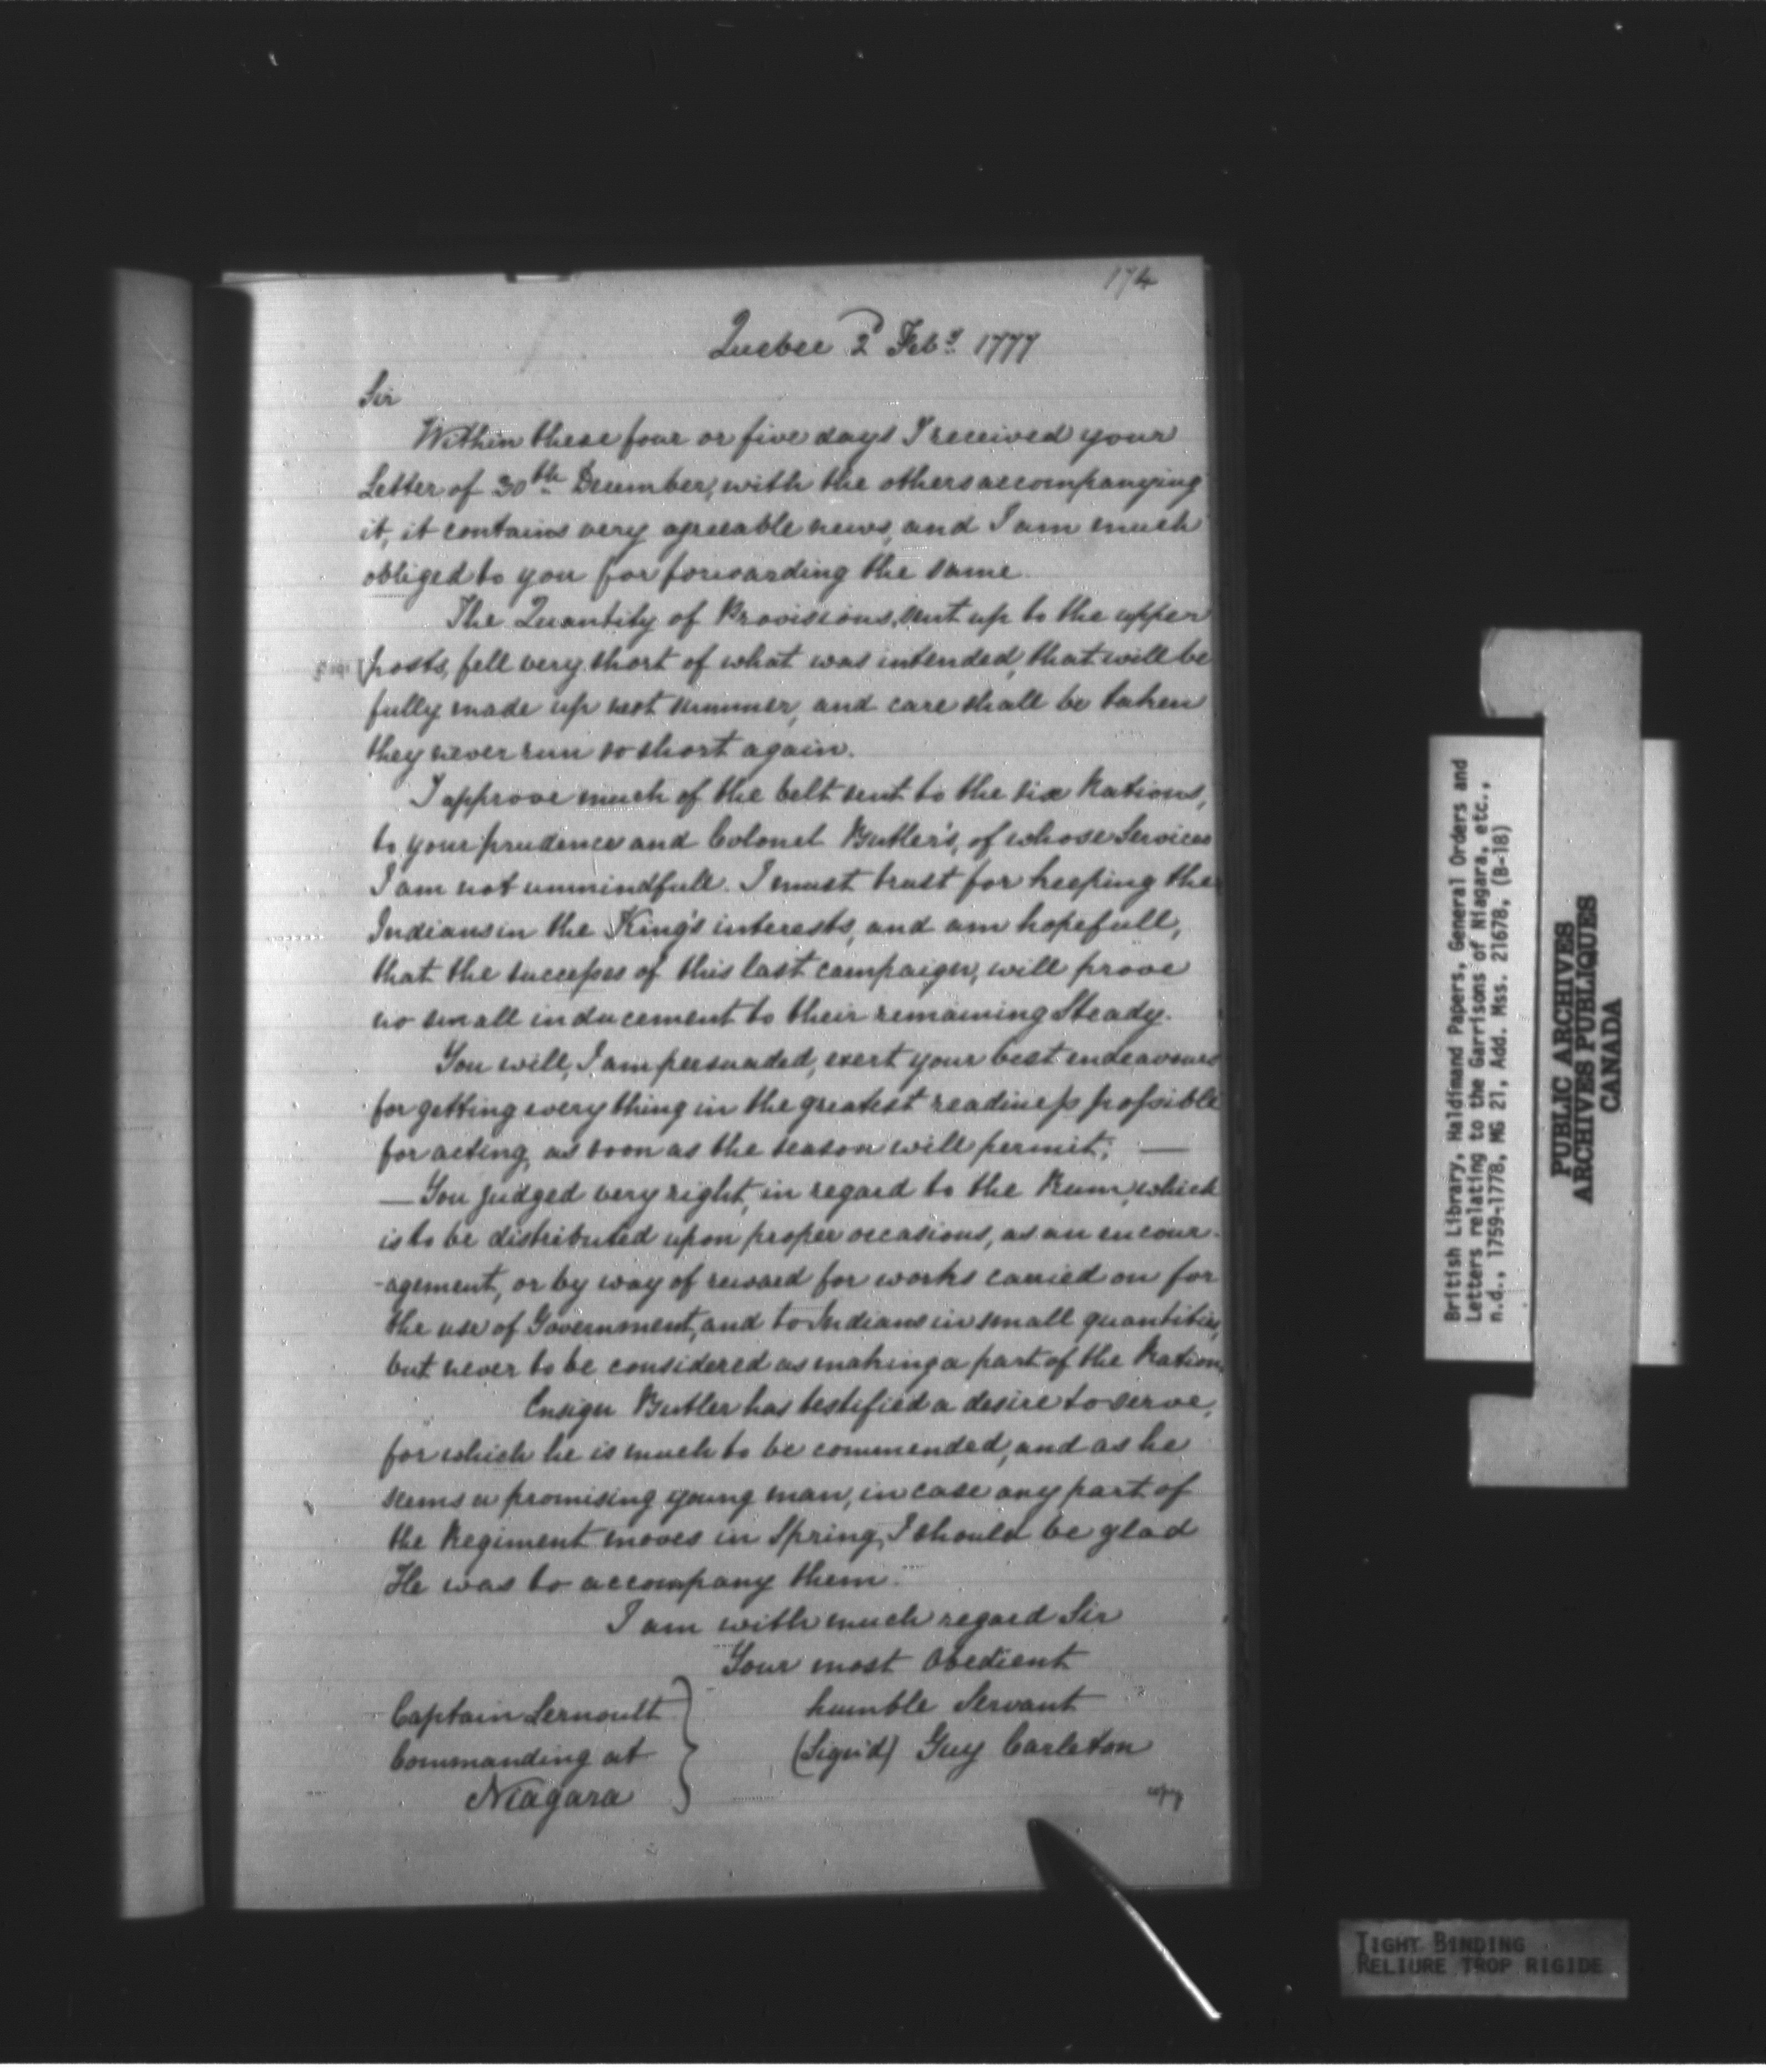 174
Quebec 2d Feby 1777
Sir
Within these four or five days I received your
Letter of 30th December, with the others accompanying
it, it contains very agreeable news, and I am much
obliged to you for forwarding the same.
The Quantity of Provisions, sent up to the upper
posts, fell very short of what was intended, that will be
fully made up next summer, and care shall be taken
they never run so short again.
I approve much of the belt sent to the six Nations,
to your prudence and Colonel Butler's, of whose Services
I am not unmindfull. I must trust for keeping the
Indians in the King's interests, and am hopefull,
that the successes of this last campaign, will prove
no small inducement to their remaining Steady.
You will, I am persuaded, exert your best endeavours
for getting every thing in the greatest readiness possible
for acting, as soon as the season will permit; —
— You judged very right, in regard to the Rum, which
is to be distributed upon proper occasions, as an encour-
-agement, or by way of reward for works carried on for
the use of Government, and to Indians in small quantities,
but never to be considered as making a part of the Ration.
Ensign Butler has testified a desire to serve,
for which he is much to be commended, and as he
seems a promising young man, in case any part of
the Regiment moves in Spring, I should be glad
He was to accompany them.
I am with much regard Sir
Your most Obedient
humble Servant
(Sign'd) Guy Carleton
Captain Lernoult
Commanding at
Niagara
copy
British Library, Haldimand Papers, General Orders and
Letters relating to the Garrisons of Niagara, etc.,
n.d., 1759-1778, MG 21, Add. Mss. 21678, (B-18)
PUBLIC ARCHIVES
ARCHIVES PUBLIQUES
CANADA
TIGHT BINDING
RELIURE TROP RIGIDE